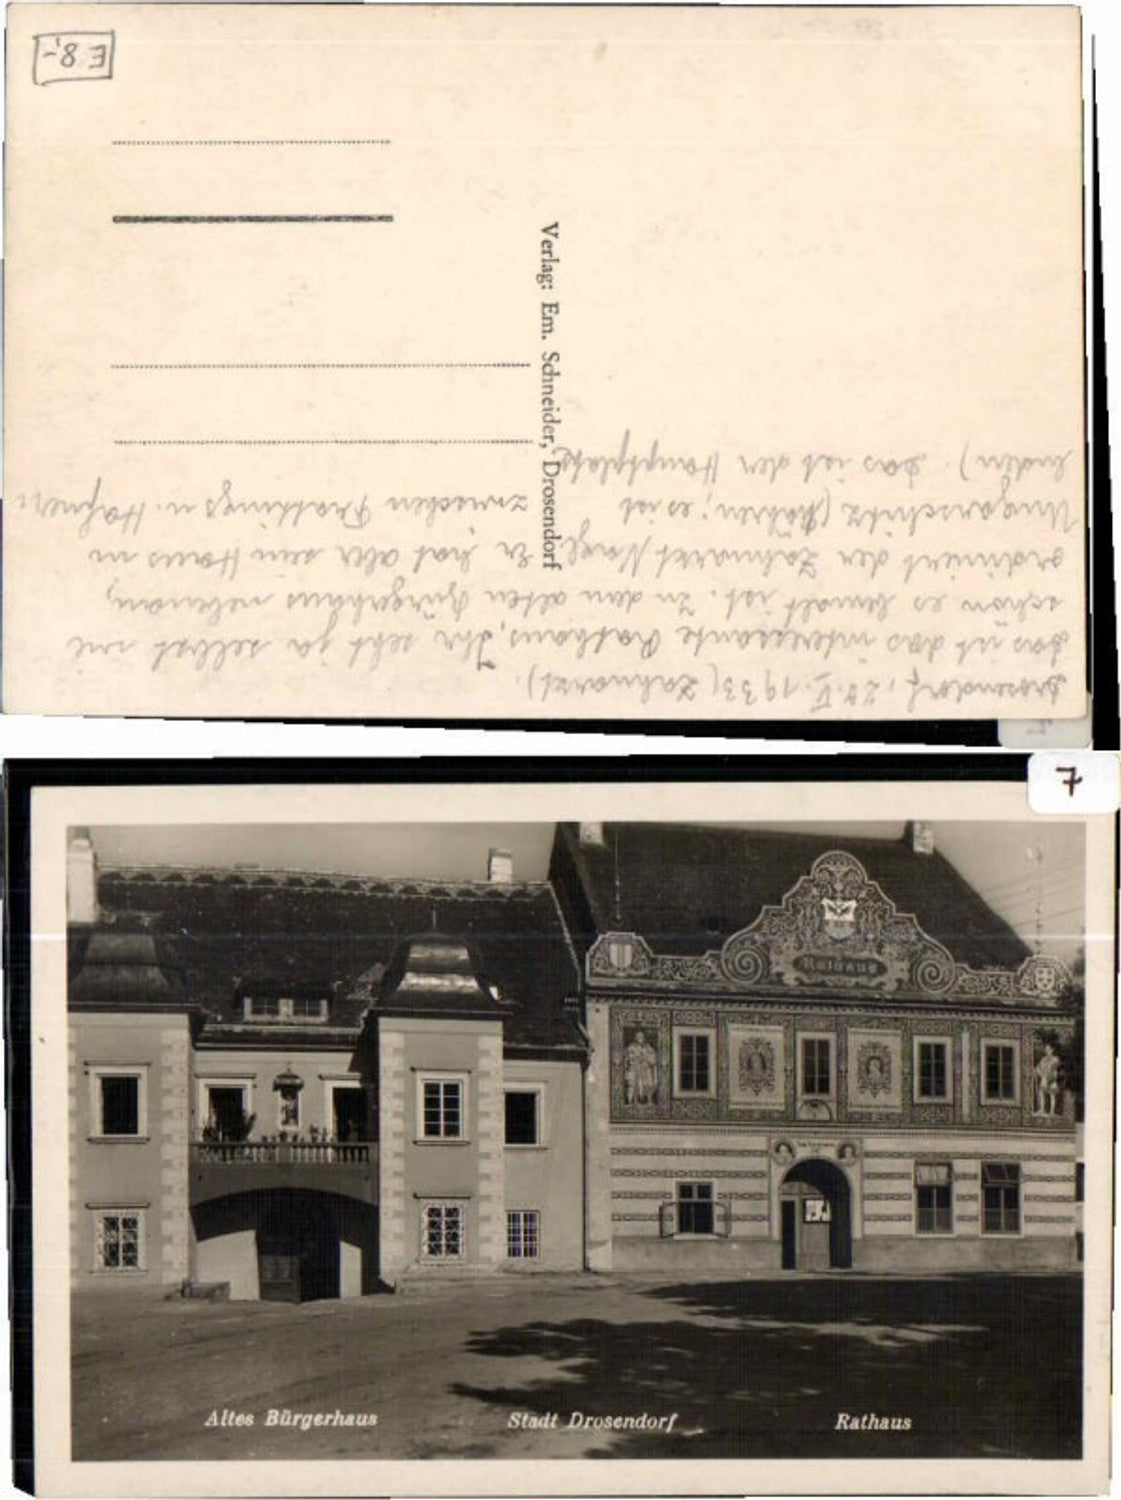 E 8,-
Verlag: Em. Schneider, Drosendorf
Drosendorf, 1933 (Zahnarzt).
Das ist das interessante Rathaus, Ihr seht ja selbst wie
schön es bemalt ist. In dem alten Bürgerhaus nebenan,
ordiniert der Zahnarzt Nagl. Er hat aber sein Haus in
Ungarschitz (Mähren; es ist zwischen Frattings u. Hafner-
luden). Das ist der Hauptplatz
7
Rathaus
Altes Bürgerhaus Stadt Drosendorf Rathaus